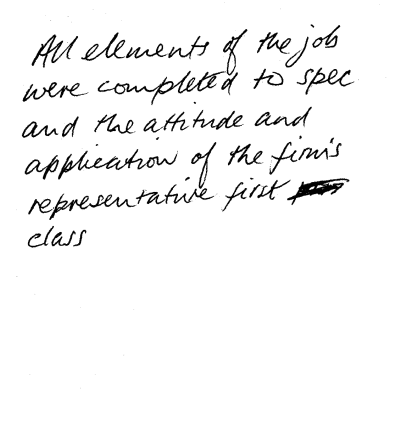 All elements of the job
were completed to spec
and the attitude and
application of the firm's
representative first
class